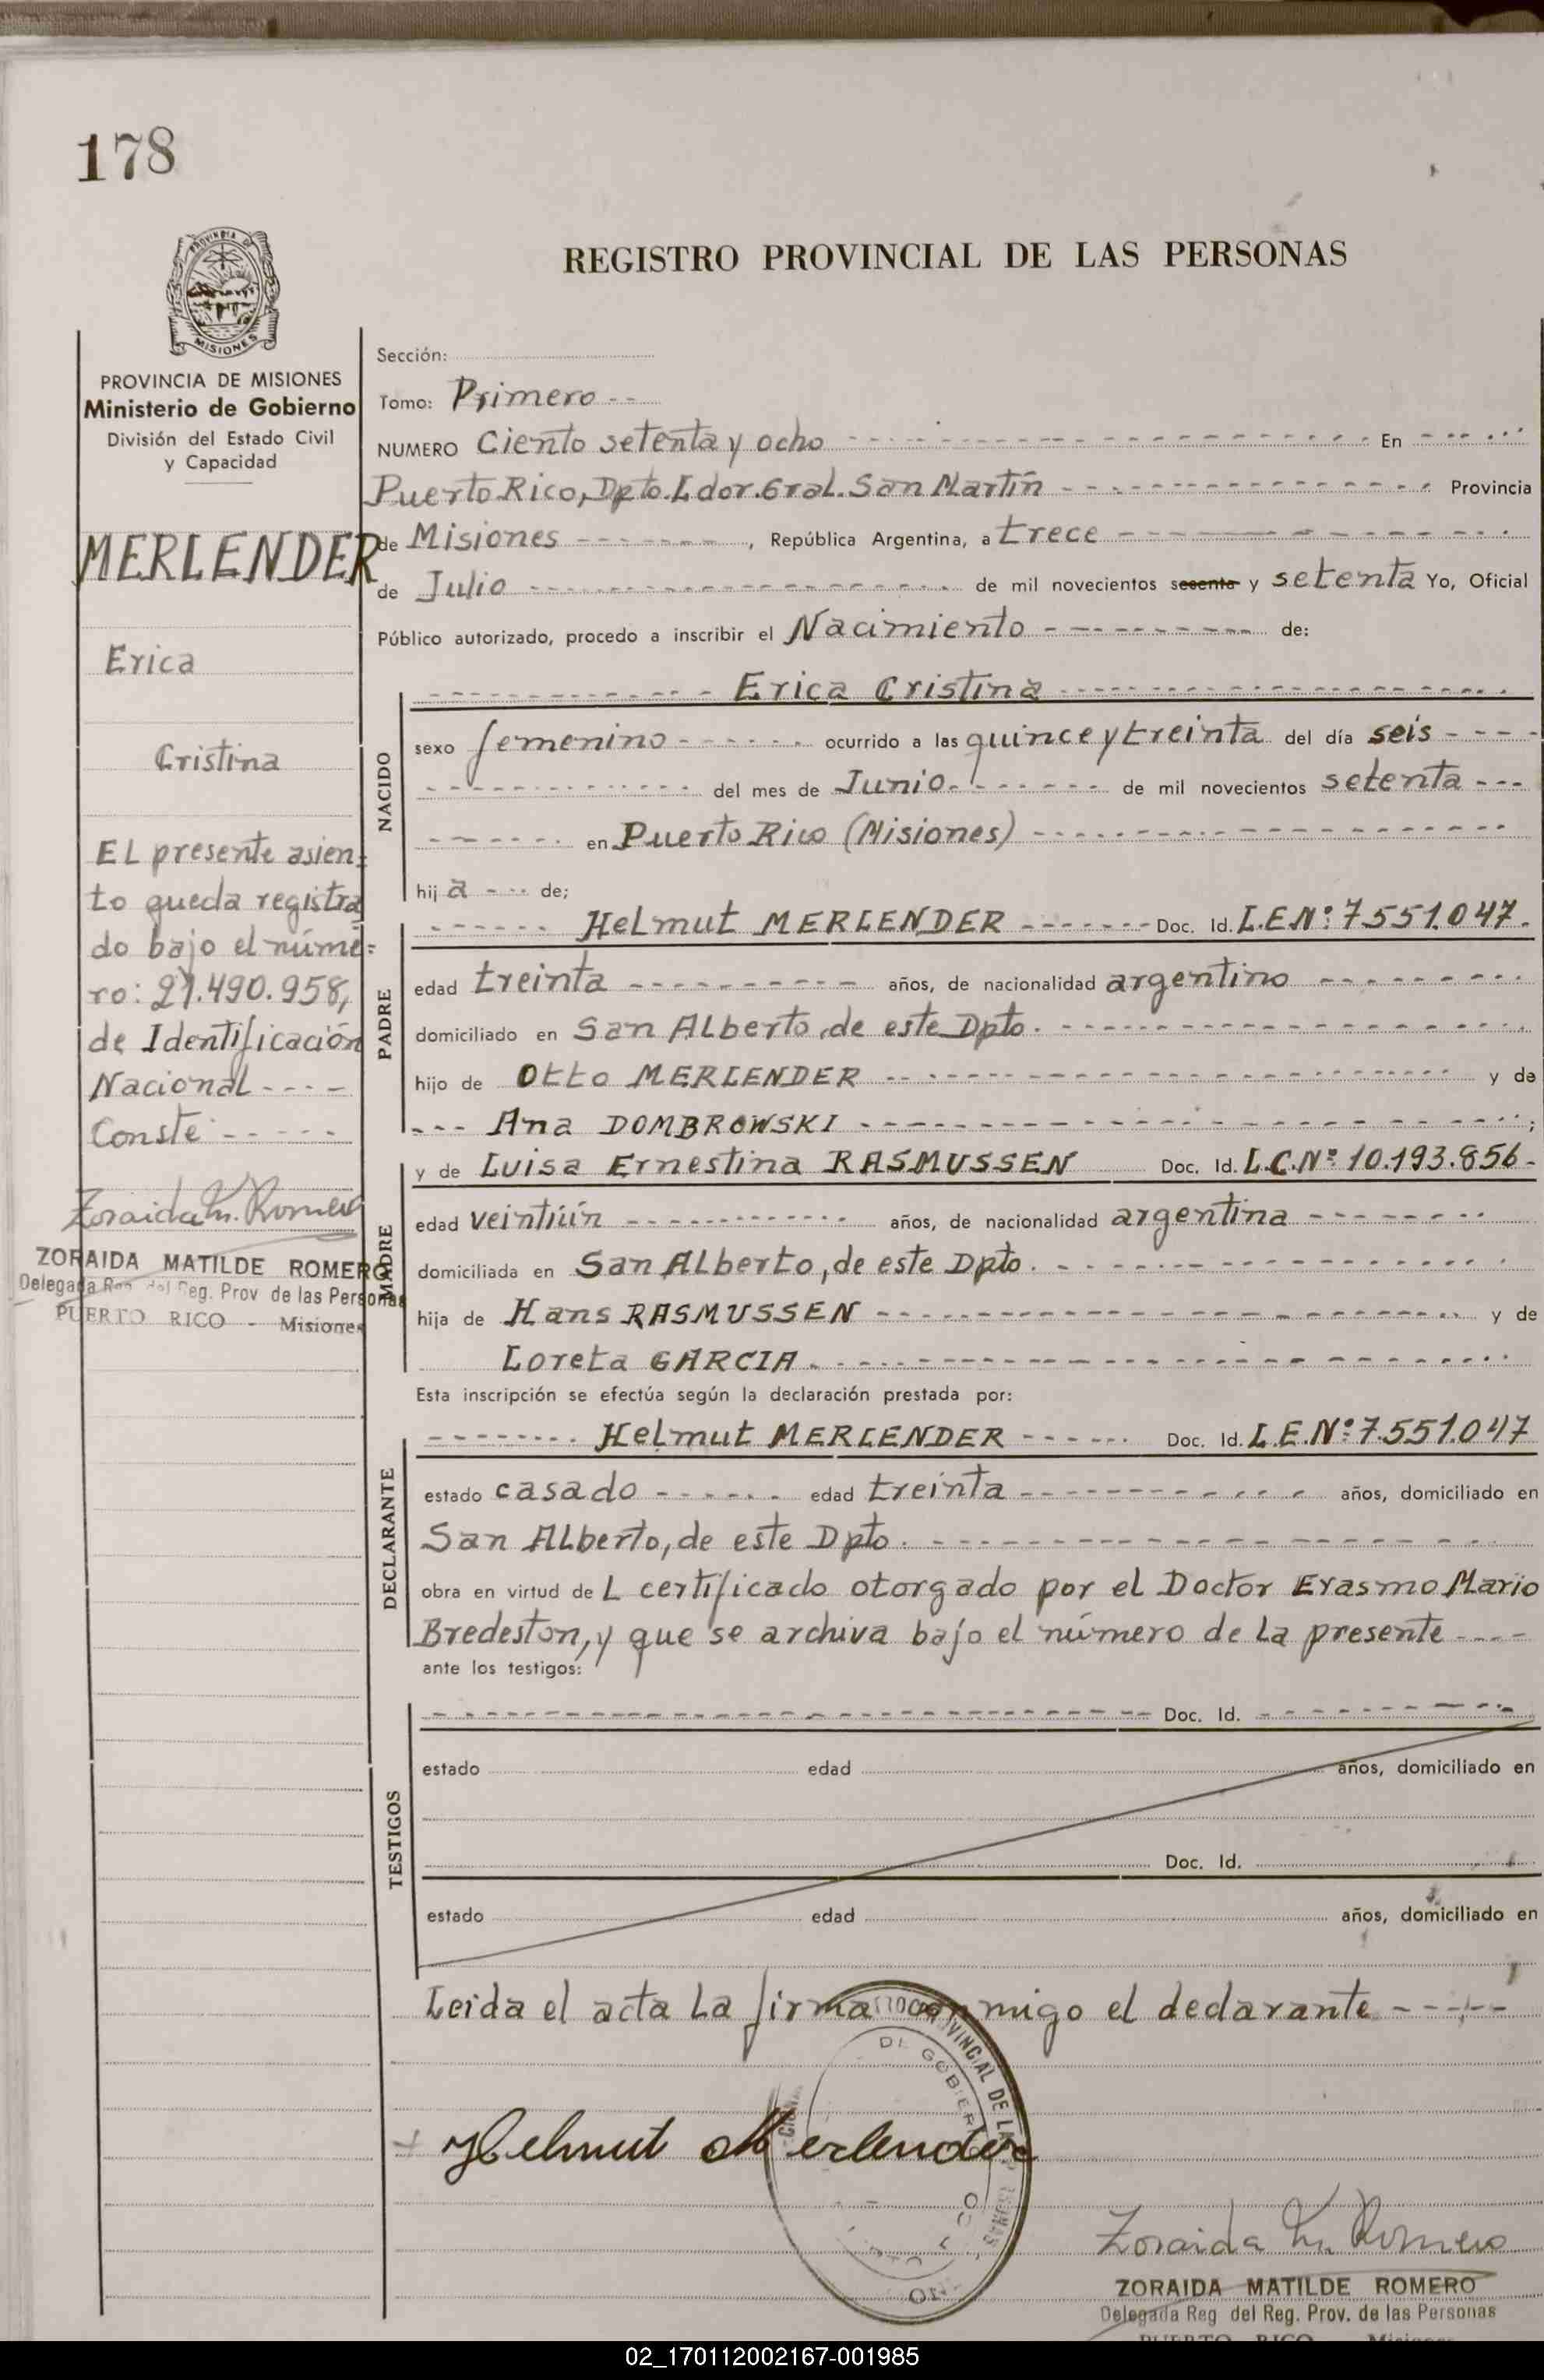 178
PROVINCIA DE
MISIONES
PROVINCIA DE MISIONES
Ministerio de Gobierno
División del Estado Civil
y Capacidad
MERLENDER
Erica
Cristina
EL presente asien=
to queda registra
do bajo el núme=
ro: 21.490.958,
de Identificación
Nacional
Conste
Zoraida M. Romero
ZORAIDA MATILDE ROMERO
Delegada Reg del Reg. Prov de las Personas
PUERTO RICO - Misiones
REGISTRO PROVINCIAL DE LAS PERSONAS
Sección:
Tomo: Primero --
NUMERO Ciento setenta y ocho --- En ---
Puerto Rico, Dpto. Ldor. Gral. San Martín --- Provincia
de Misiones ---, República Argentina, a trece ---
de Julio --- de mil novecientos sesenta y setenta Yo, Oficial
Público autorizado, procedo a inscribir el Nacimiento --- de:
NACIDO
--- Erica Cristina ---
sexo femenino --- ocurrido a las quince y treinta del día seis ---
--- del mes de Junio. --- de mil novecientos setenta ---
--- en Puerto Rico (Misiones) ---
hij a --- de;
PADRE
--- Helmut MERLENDER --- Doc. Id. L.E.Nº: 7.551.047.
edad treinta --- años, de nacionalidad argentino ---
domiciliado en San Alberto, de este Dpto. ---
hijo de Otto MERLENDER --- y de
--- Ana DOMBROWSKI --- ;
MADRE
y de Luisa Ernestina RASMUSSEN Doc. Id. L.C.Nº: 10.193.856-
edad veintiún --- años, de nacionalidad argentina ---
domiciliada en San Alberto, de este Dpto. ---
hija de Hans RASMUSSEN --- y de
Loreta GARCIA. ---
Esta inscripción se efectúa según la declaración prestada por:
DECLARANTE
--- Helmut MERLENDER --- Doc. Id. L.E.Nº: 7.551.047
estado casado --- edad treinta --- años, domiciliado en
San Alberto, de este Dpto. ---
obra en virtud de L certificado otorgado por el Doctor Erasmo Mario
Bredeston, y que se archiva bajo el número de la presente ---
ante los testigos:
TESTIGOS
--- Doc. Id. ---
estado edad años, domiciliado en
Doc. Id.
estado edad años, domiciliado en
Leida el acta la firma conmigo el declarante ---
Helmut Merlender
Zoraida M. Romero
ZORAIDA MATILDE ROMERO
Delegada Reg del Reg. Prov. de las Personas
PUERTO RICO Misiones
02_170112002167-001985